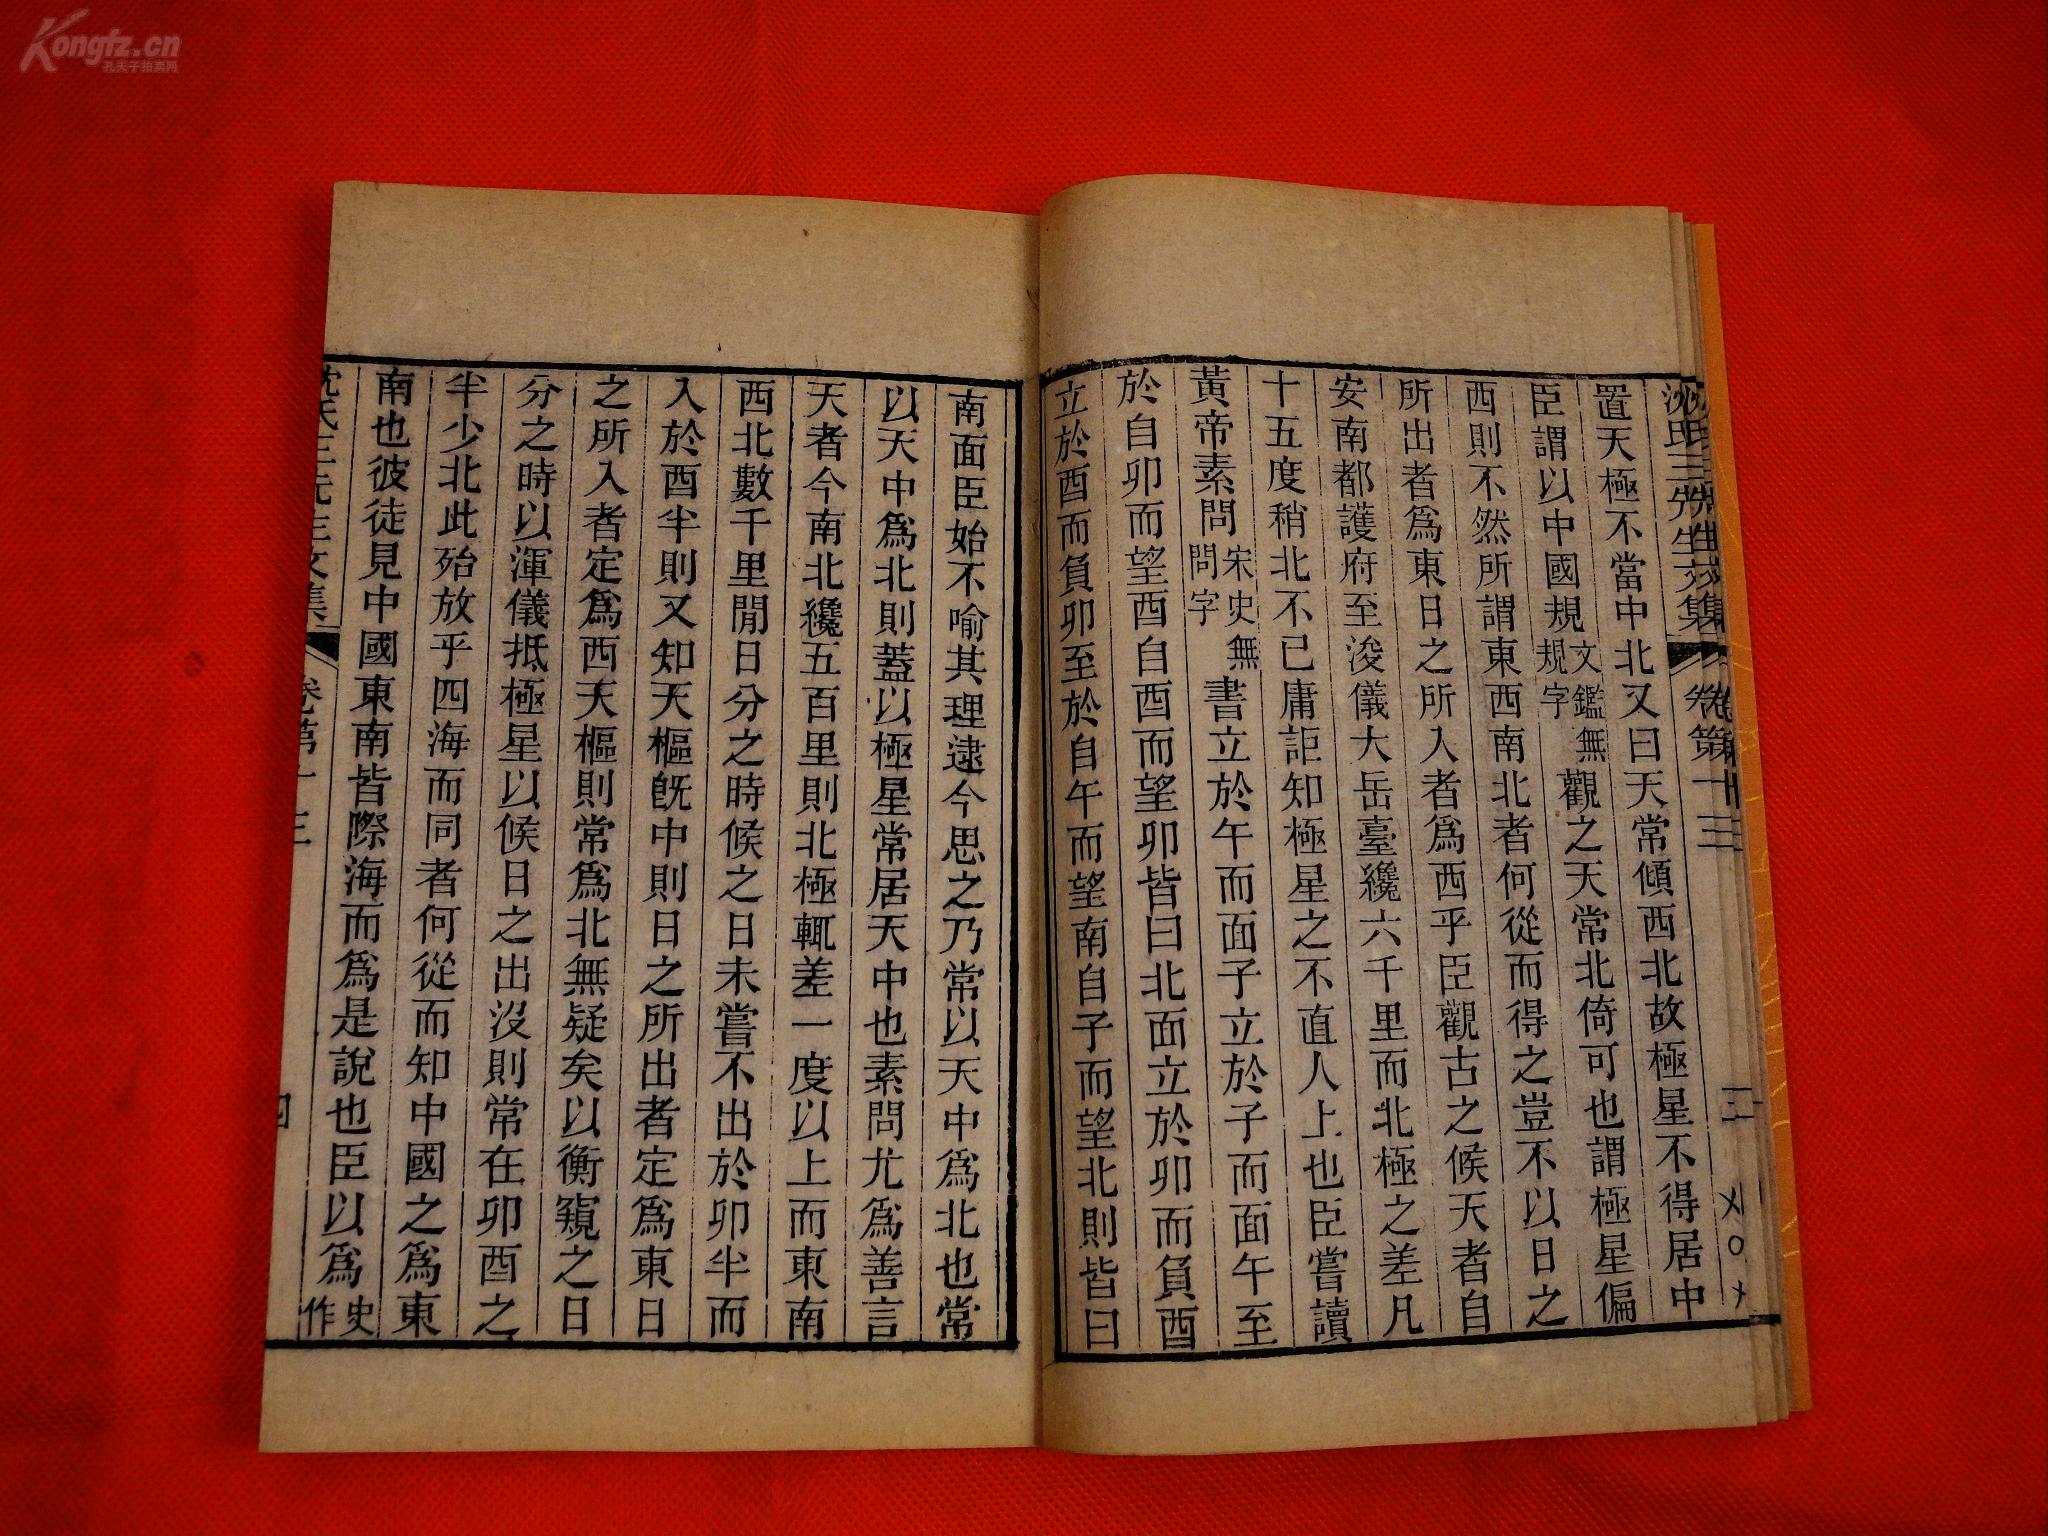 Kongfz.cn
孔夫子拍卖网
沈氏三先生文集 卷第十三
置天極不當中北又曰天常傾西北故極星不得居中
臣謂以中國規文鑑無規字觀之天常北倚可也謂極星偏
西則不然所謂東西南北者何從而得之豈不以日之
所出者爲東日之所入者爲西乎臣觀古之候天者自
安南都護府至浚儀大岳臺纔六千里而北極之差凡
十五度稍北不已庸詎知極星之不直人上也臣嘗讀
黃帝素問宋史無問字書立於午而面子立於子而面午至
於自卯而望酉自酉而望卯皆曰北面立於卯而負酉
立於酉而負卯至於自午而望南自子而望北則皆曰
南面臣始不喻其理逮今思之乃常以天中爲北也常
以天中爲北則蓋以極星常居天中也素問尤爲善言
天者今南北纔五百里則北極輒差一度以上而東南
西北數千里閒日分之時候之日未嘗不出於卯半而
入於酉半則又知天樞旣中則日之所出者定爲東日
之所入者定爲西天樞則常爲北無疑矣以衡窺之日
分之時以渾儀抵極星以候日之出沒則常在卯酉之
半少北此殆放乎四海而同者何從而知中國之爲東
南也彼徒見中國東南皆際海而爲是說也臣以爲史作
沈氏三先生文集 卷第十三 四